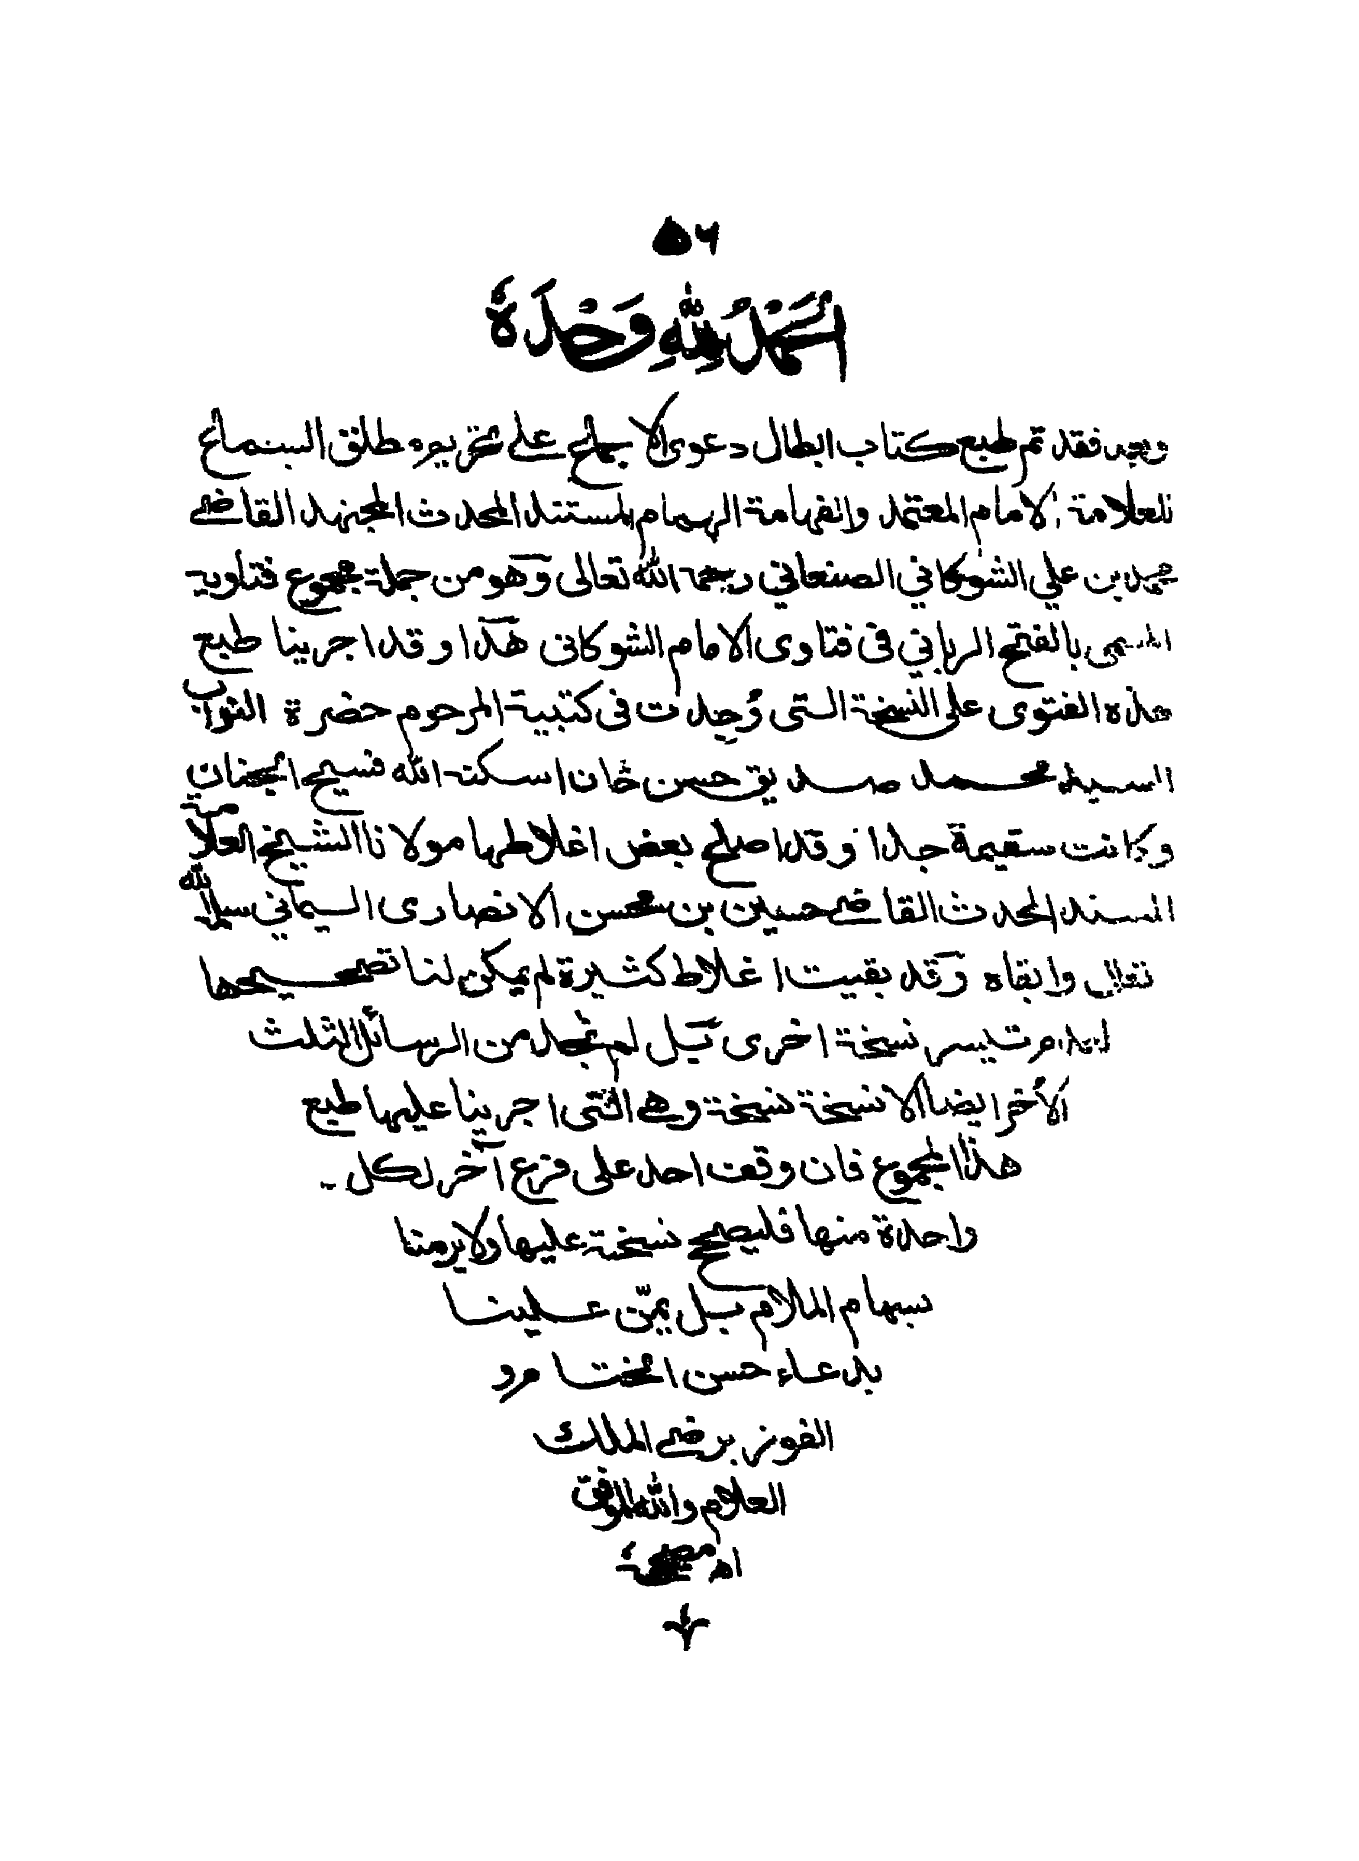 ٥٦
الحَمْدُ لِلّٰهِ وَحْدَهُ
وبعد فقد تم طبع كتاب ابطال دعوى الاجماع على تحريم مطلق السماع
للعلامة الامام المعتمد والفهامة الهمام المستند المحدث المجتهد القاضي
محمد بن علي الشوكاني الصنعاني رحمه الله تعالى وهو من جملة مجموع فتاويه
المسمى بالفتح الرباني في فتاوى الامام الشوكانى هذا وقد اجرينا طبع
هذه الفتوى على النسخة التى وُجدت فى كتبية المرحوم حضرة النواب
السيد محمد صديق حسن خان اسكنه الله فسيح الجنان
وكانت سقيمة جدا وقد اصلح بعض اغلاطها مولانا الشيخ العلامة
المسند المحدث القاضي حسين بن محسن الانصارى اليماني سلمه الله
تعالى وابقاه وقد بقيت اغلاط كثيرة لم يمكن لنا تصحيحها
لعدم تيسر نسخة اخرى بل لم نجد من الرسائل الثلث
الأُخر ايضا الا نسخة نسخة وهي التى اجرينا عليها طبع
هذا المجموع فان وقف احد على فرع آخر لكل
واحدة منها فليصحح نسخته عليها ولا يرمنا
بسهام الملام بل يمنّ علينا
بدعاء حسن الختام و
الفوز برضي الملك
العلام والله الموفق
اھ مصححهُ